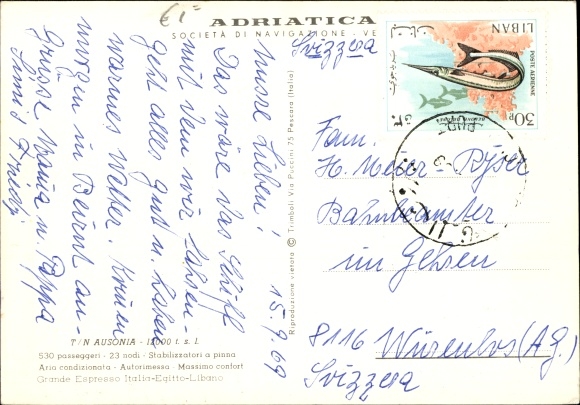 € 1=
ADRIATICA
SOCIETÀ DI NAVIGAZIONE - VE
Svizzera
15.9.69
unsre Lieben!
Das wäre das Schiff
mit dem wir fahren
geht alles gut u. haben
warmes Wetter. Kommen
morgen in Beirut an-
Grüsse Mama u. Pappa
T/N AUSONIA - 12000 t. s. l.
530 passeggeri - 23 nodi - Stabilizzatori a pinna
Aria condizionata - Autorimessa - Massimo confort
Grande Espresso Italia-Egitto-Libano
Riproduzione vietata © Trimboli Via Puccini 75 Pescara (Italia)
LIBAN
POSTE AERIENNE
30P.
Fam.
H. Meier-Ryser
Bahnbeamter
im Gehren
8116 Würenlos (Ag.)
Svizzera